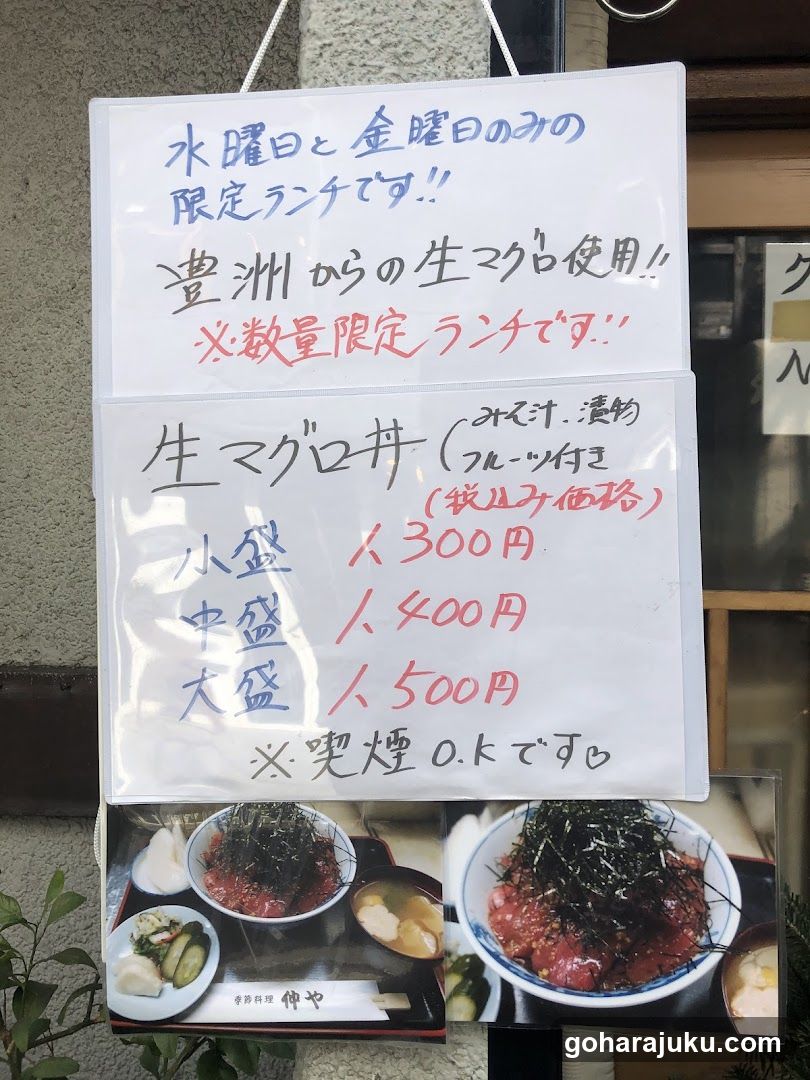 水曜日と金曜日のみの
限定ランチです!!
豊洲からの生マグロ使用!!
※数量限定ランチです!!
生マグロ丼(みそ汁、漬物
フルーツ付き
(税込み価格)
小盛 1,300円
中盛 1,400円
大盛 1,500円
※喫煙O.Kです♡
季節料理 仲や
goharajuku.com